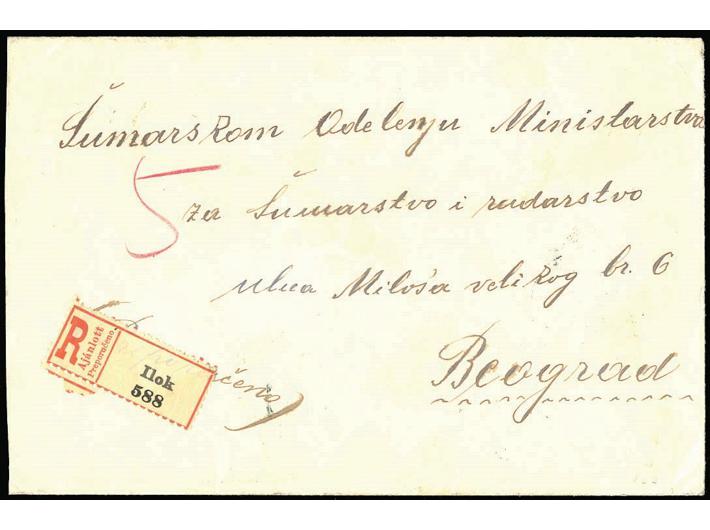 Šumarskom Odelenju Ministarstva
5
za Šumarstvo i rudarstvo
ulica Miloša velikog br. 6
Beograd
R
Ajánlott
Preporučeno.
Ilok
588